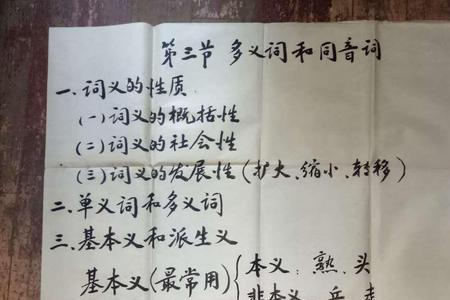 第三节 多义词和同音词
一、词义的性质
(一)词义的概括性
(二)词义的社会性
(三)词义的发展性(扩大、缩小、转移)
二、单义词和多义词
三、基本义和派生义
基本义(最常用){本义：熟、头
非本义：兵、走